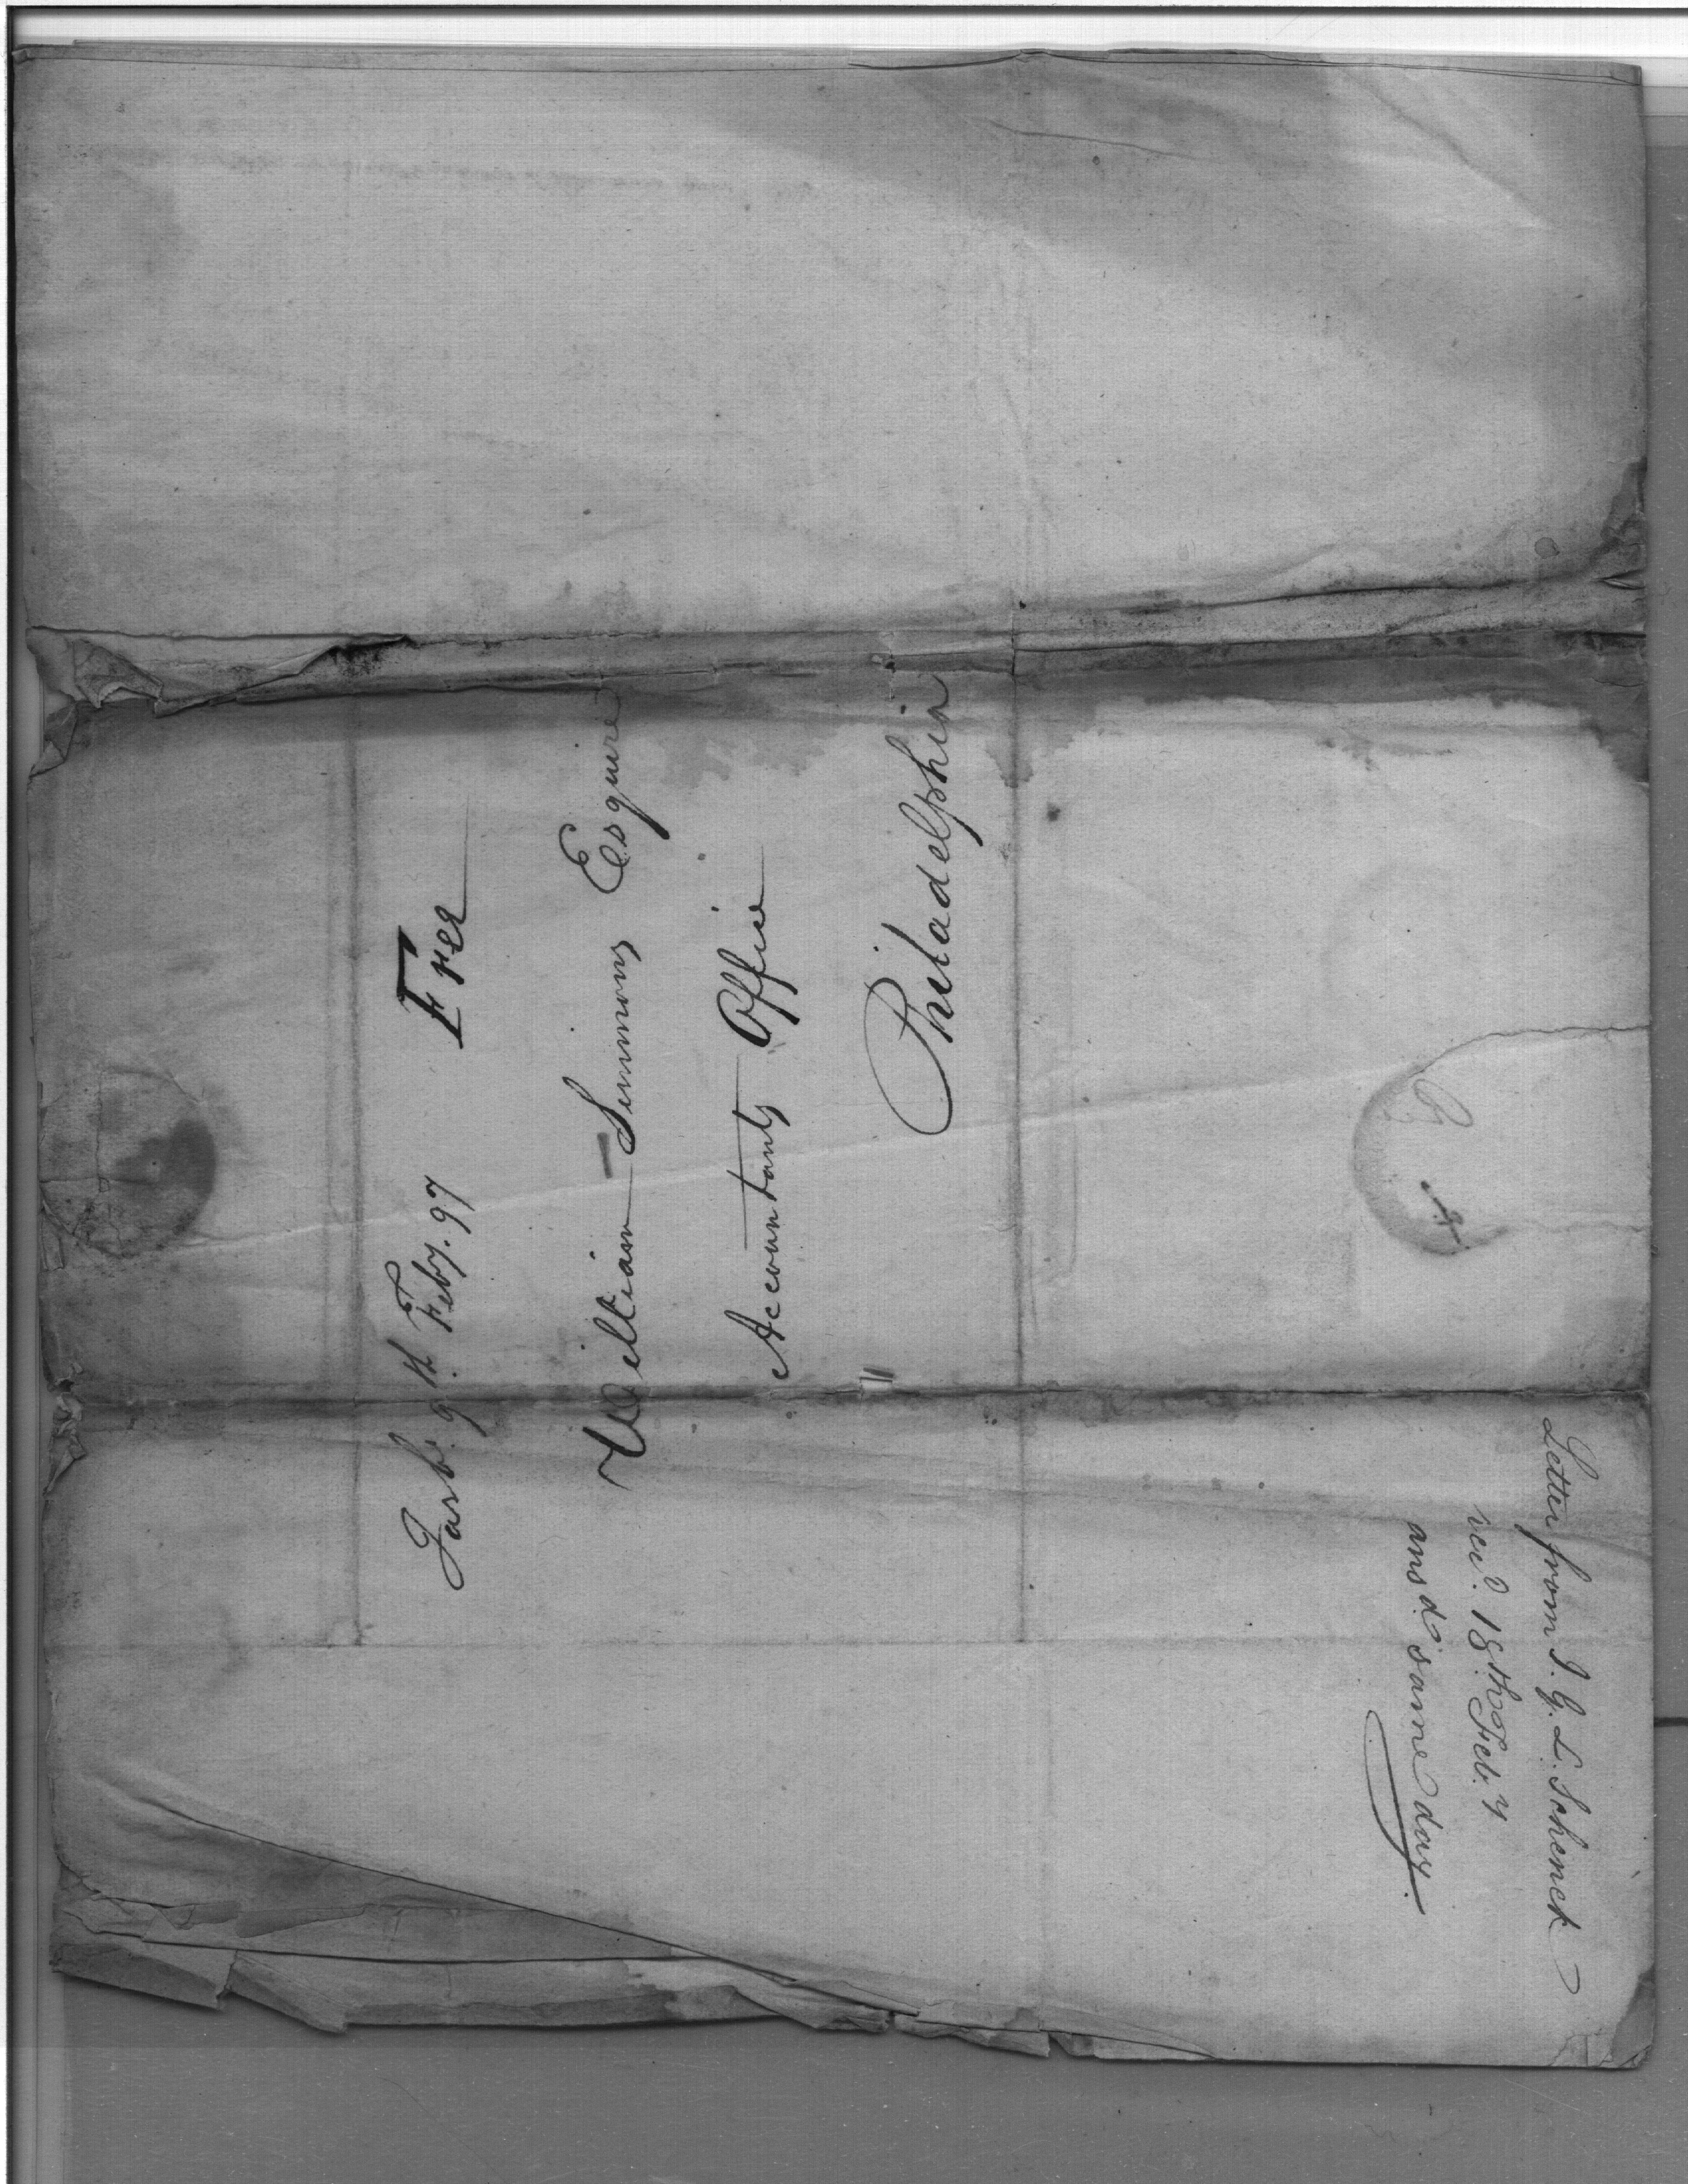 Tarb. 9th Feby. 97 Free
William Simmons Esquire
Accountants Office
Philadelphia
Letter from I. G. L. Schenck
recd. 18th Feb. 7
ansd. same day